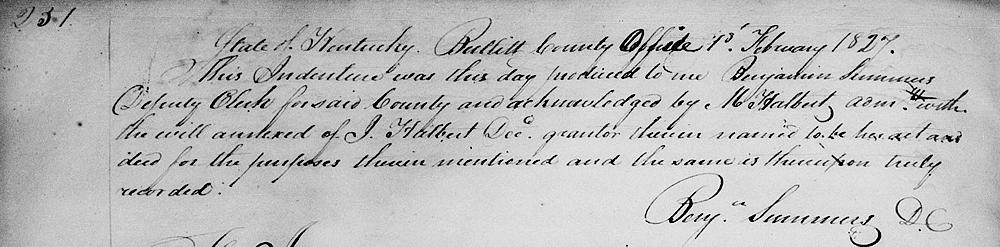 231.
State of Kentucky. Bullitt County Office 1st February 1827.
This Indenture was this day produced to me Benjamin Summers
Deputy Clerk for said County and acknowledged by M Halbert adm. with
the will annexed of J. Halbert Decd. grantor therein named to be her act and
deed for the purposes therein mentioned and the same is thereupon truly
recorded.
Benj.n Summers D.C